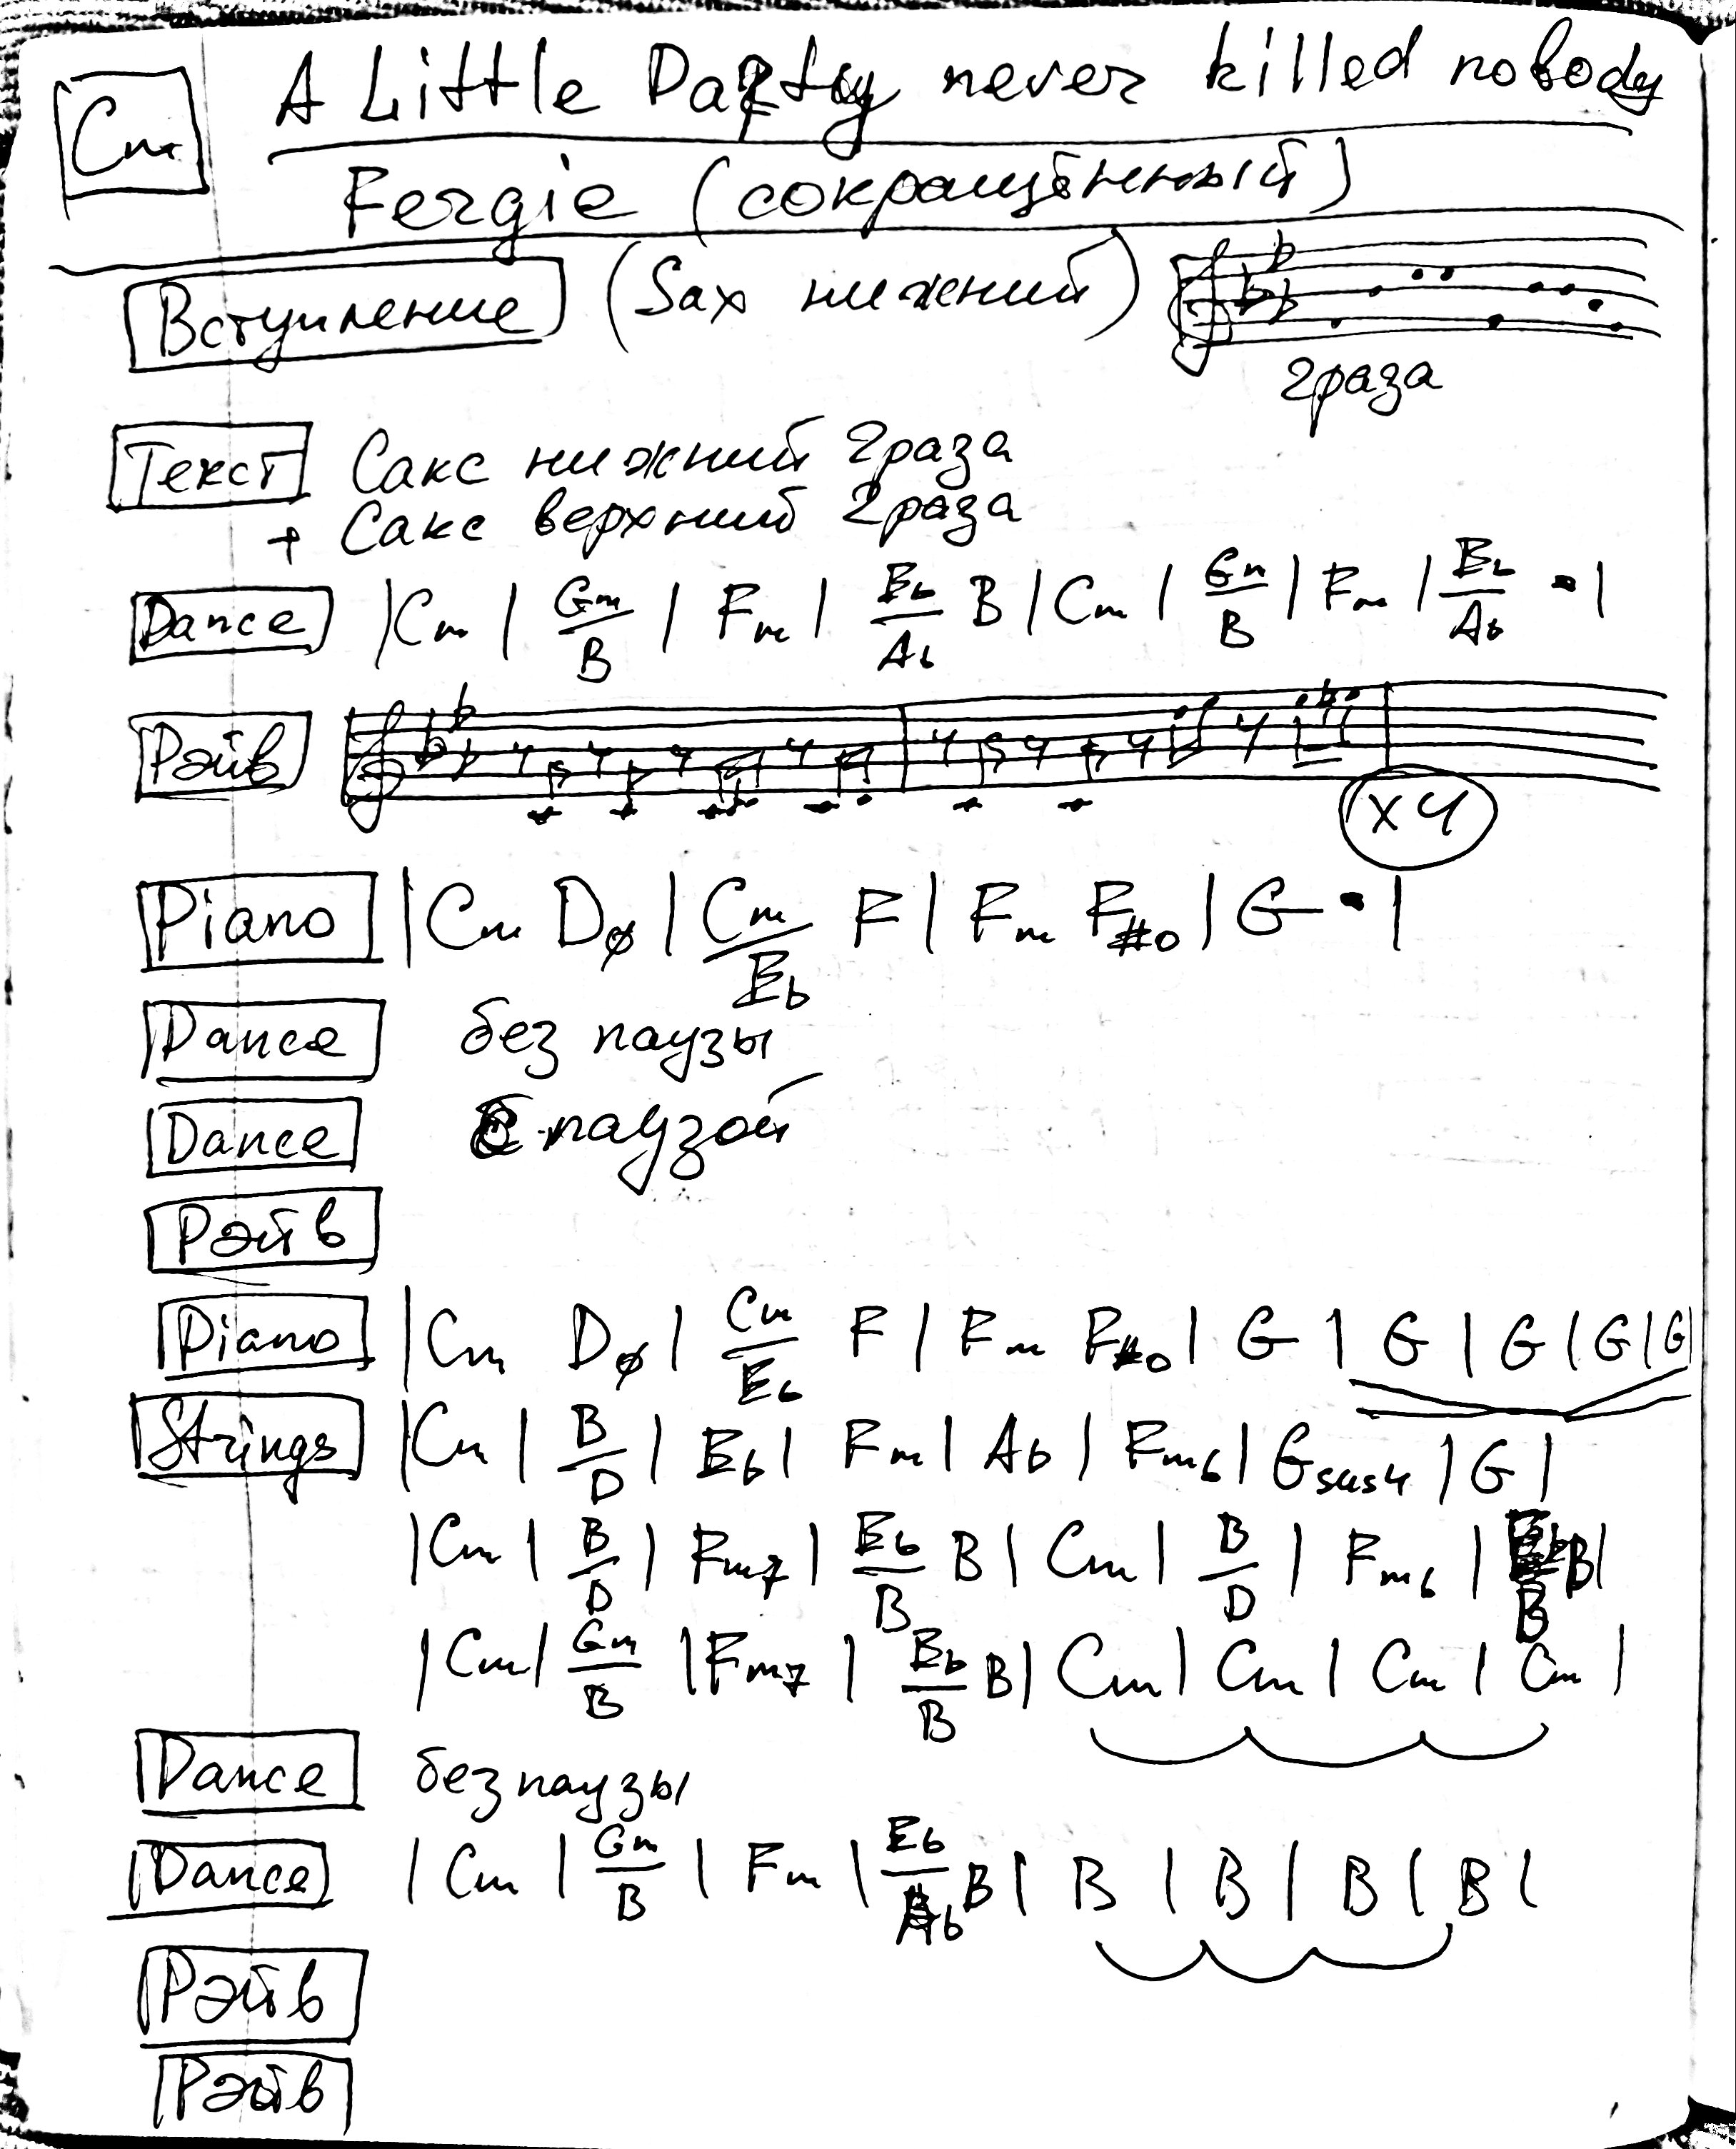 Cm A Little Party never killed nobody
Fergie (сокращённый)
Вступление (Sax нижний)
2 раза
Текст Сакс нижний 2 раза
+ Сакс верхний 2 раза
Dance | Cm | Gm/B | Fm | Eb/Ab B | Cm | Gm/B | Fm | Eb/Ab • |
Рэйв
x4
Piano | Cm Dø | Cm/Eb F | Fm F#o | G • |
Dance без паузы
Dance с паузой
Рэйв
Piano | Cm Dø | Cm/Eb F | Fm F#o | G | G | G | G | G
Strings | Cm | B/D | Eb | Fm | Ab | Fm6 | Gsus4 | G |
| Cm | B/D | Fm7 | Eb/B B | Cm | B/D | Fm6 | B |
| Cm | Gm/B | Fm7 | Eb/B B | Cm | Cm | Cm | Cm |
Dance без паузы
Dance | Cm | Gm/B | Fm | Eb/Ab B | B | B | B | B |
Рэйв
Рэйв